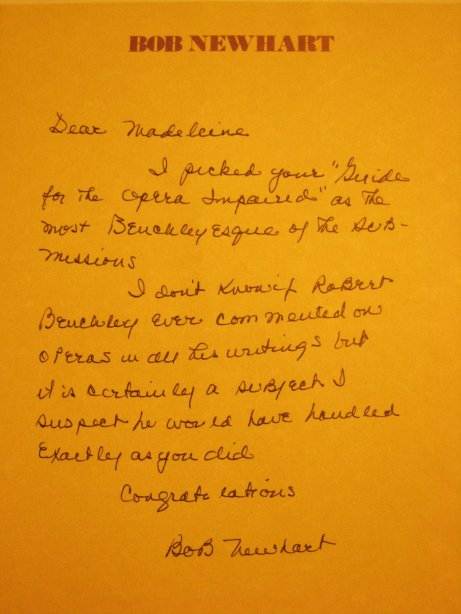 BOB NEWHART
Dear Madeleine
I picked your "Guide
for The Opera Impaired" as The
most BenchleyEsque of The sub-
missions
I don't Know if RoBert
Benchley Ever commented on
operas in all his writings but
it is certainly a suBject I
suspect he would have handled
Exactly as you did
Congratulations
BoB Newhart